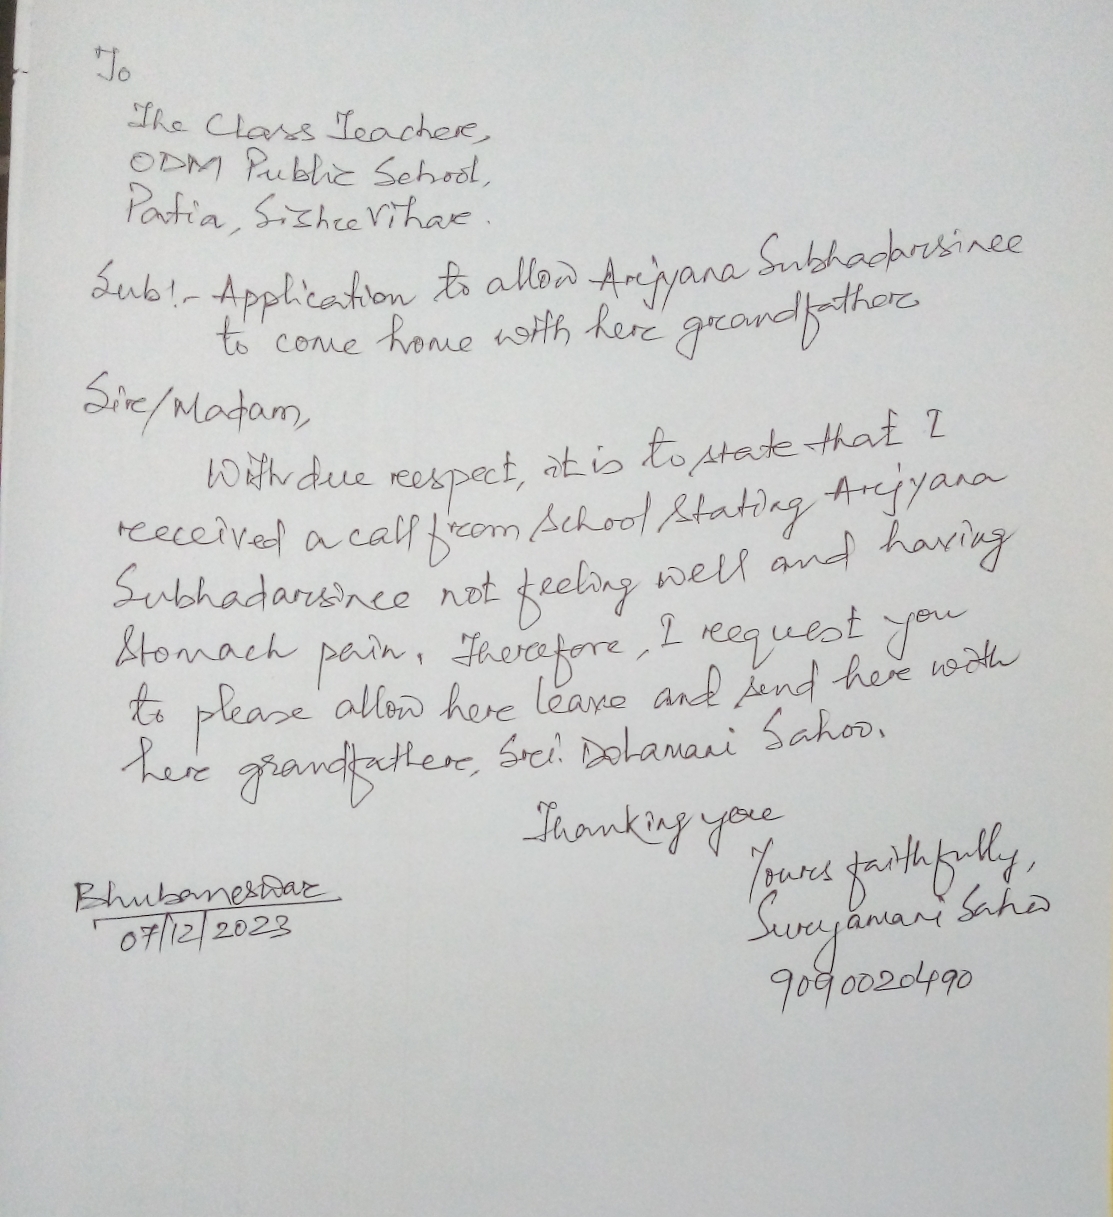 To
The Class Teacher,
ODM Public School,
Patia, Sishu Vihar.
Sub:- Application to allow Arjyana Subhadarsinee
to come home with her grandfather
Sir/Madam,
With due respect, it is to state that I
received a call from School stating Arjyana
Subhadarsinee not feeling well and having
Stomach pain. Therefore, I request you
to please allow her leave and send her with
her grandfather, Sri. Dolamani Sahoo.
Thanking you
Yours faithfully,
Surjyamani Sahoo
9090020490
Bhubaneswar
07/12/2023